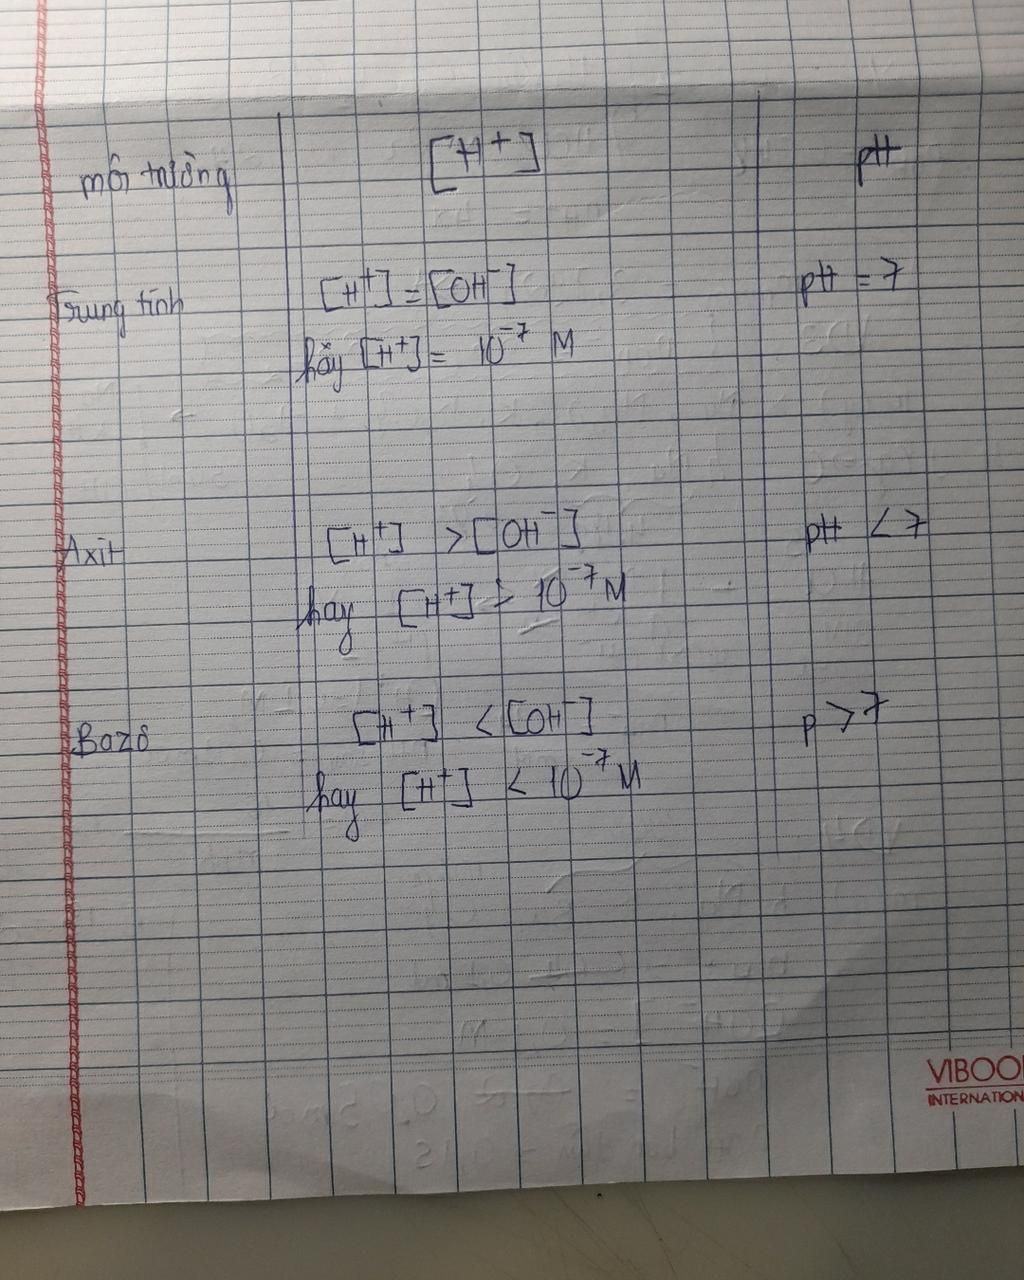 môi trường [H⁺] pH
Trung tính [H⁺] = [OH⁻] pH = 7
hãy [H⁺] = 10⁻⁷ M
Axit [H⁺] > [OH⁻] pH < 7
hay [H⁺] > 10⁻⁷ M
Bazơ [H⁺] < [OH⁻] p > 7
hay [H⁺] < 10⁻⁷ M
VIBOO
INTERNATION